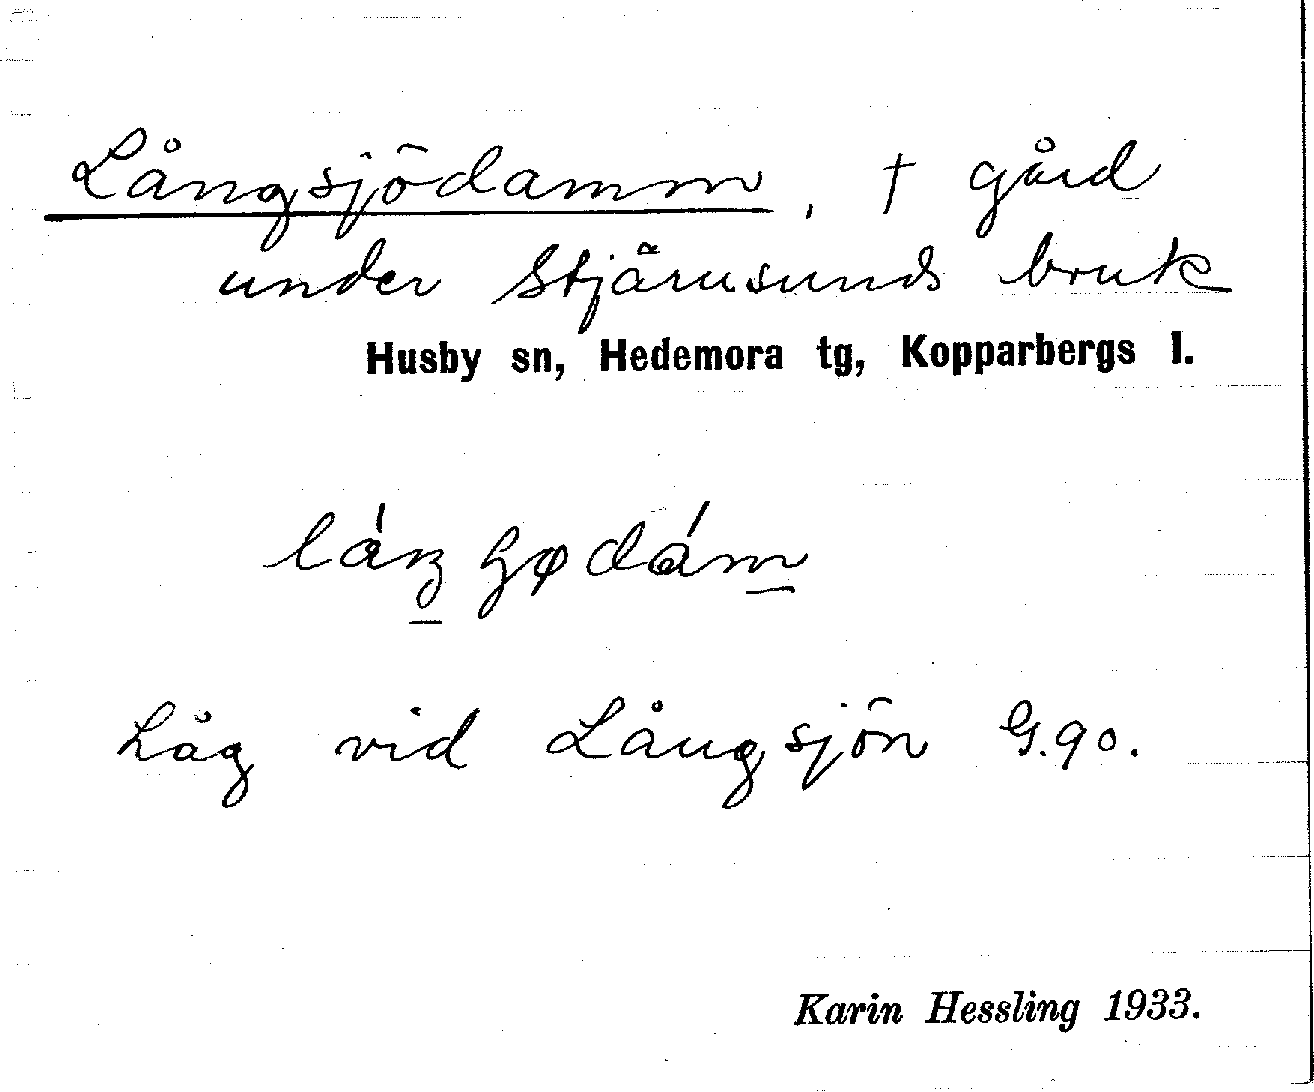 Långsjödamm, † gård
under Stjärnsunds bruk
Husby sn, Hedemora tg, Kopparbergs l.
Låg vid Långsjön G.90.
Karin Hessling 1933.